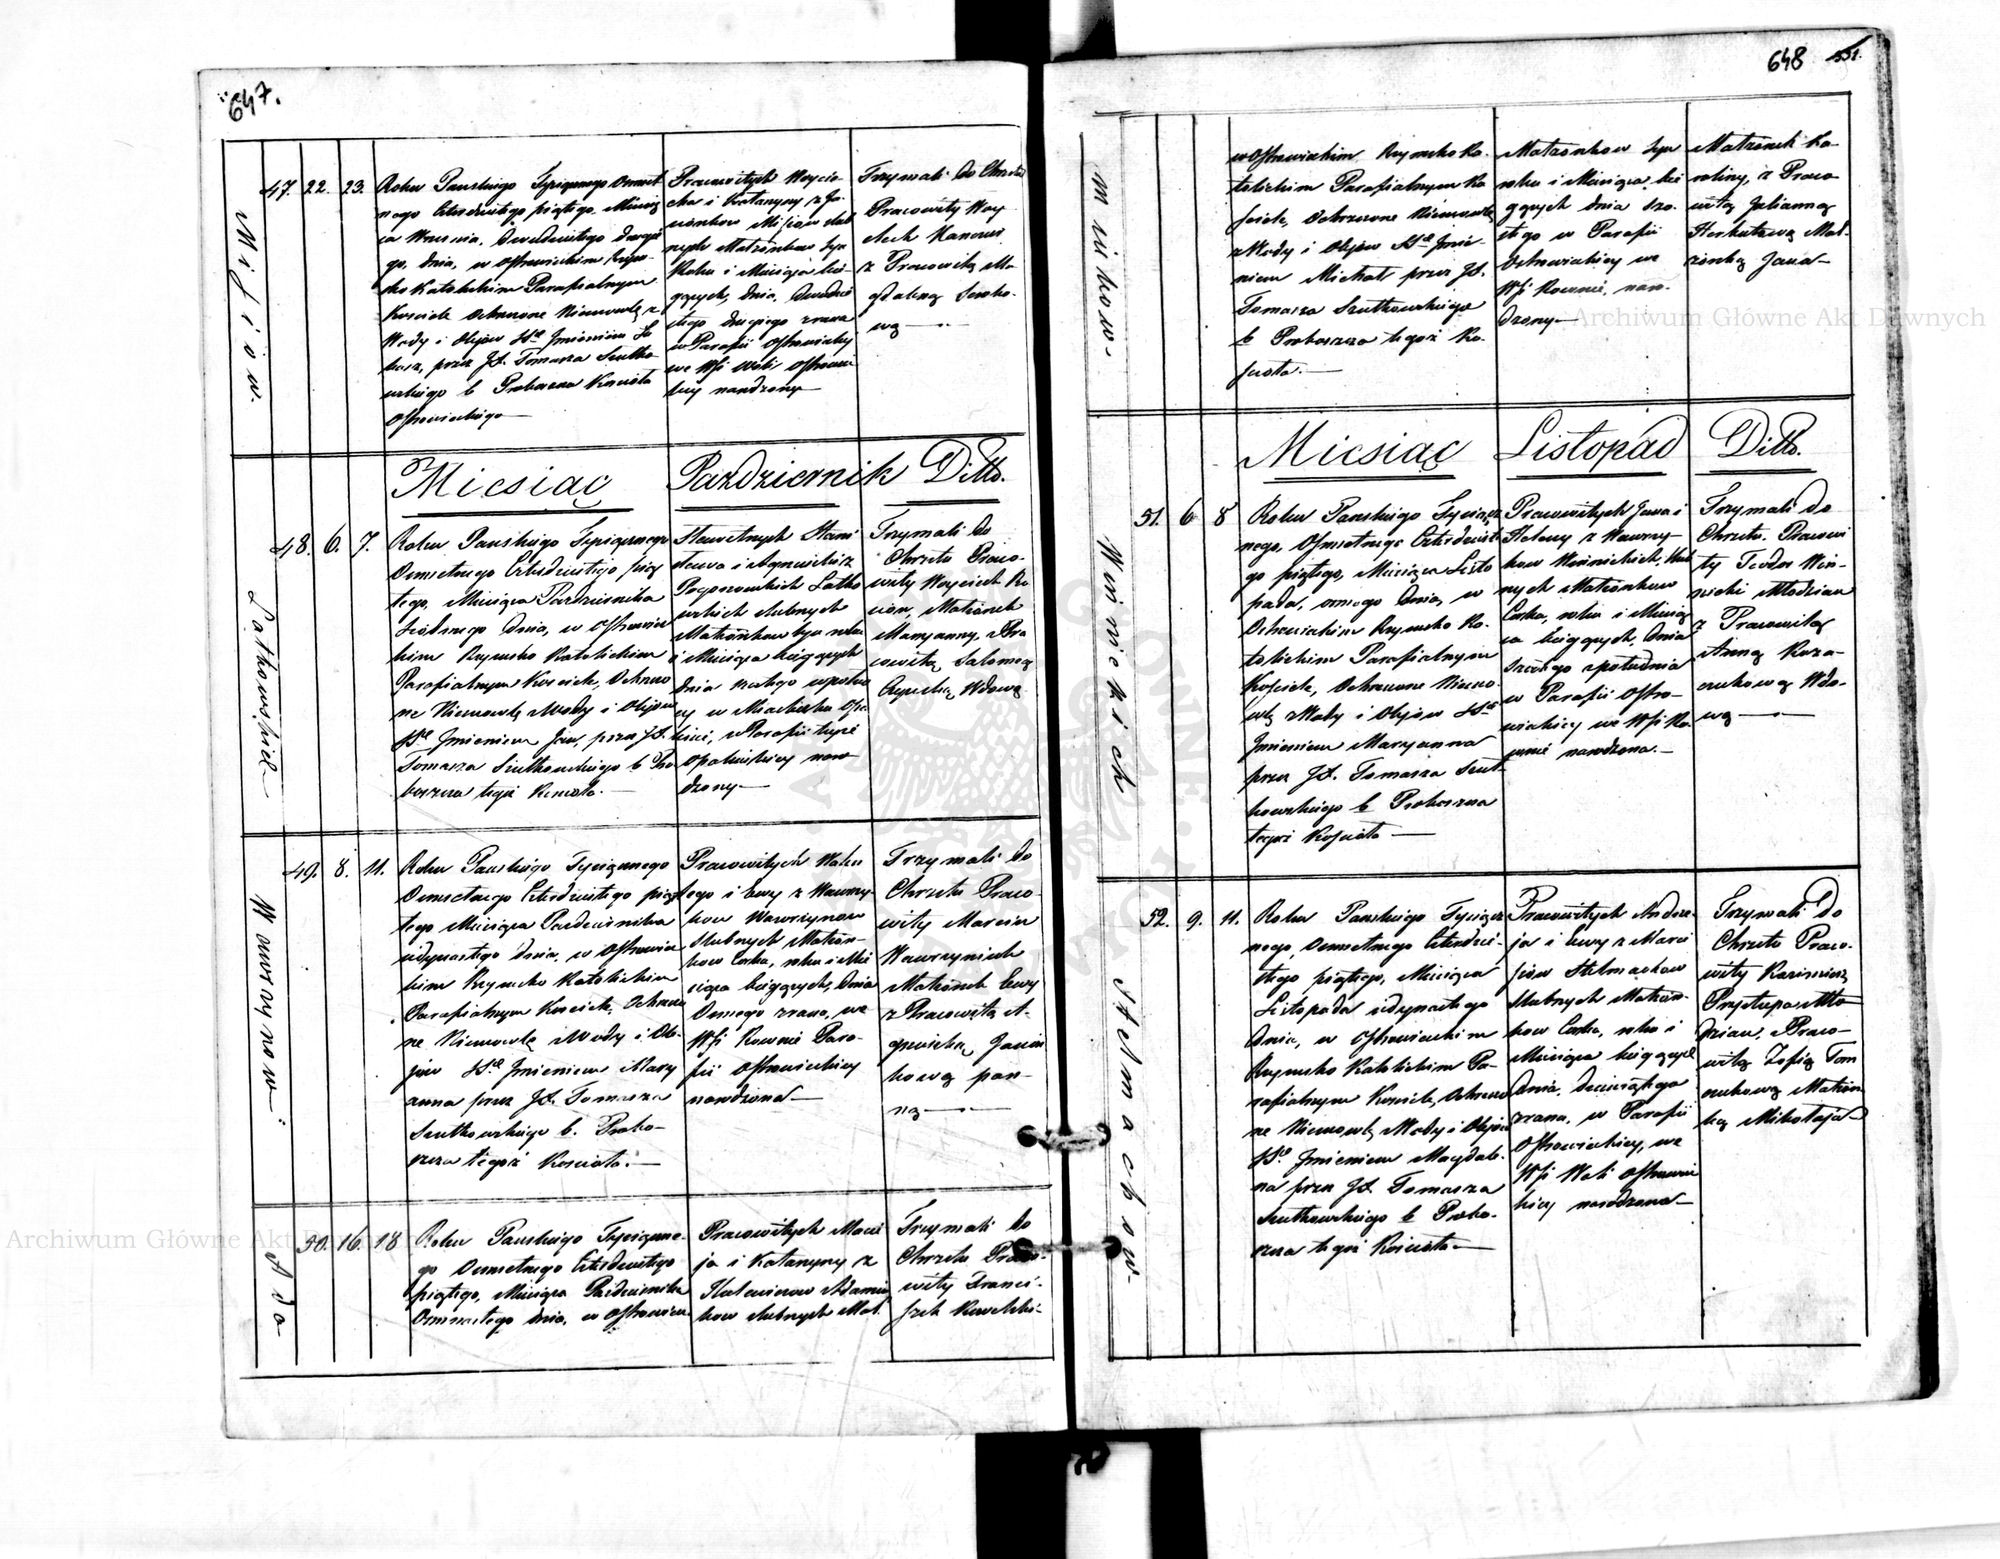 647.
Migiow.
47. 22. 23.
Roku Pańskiego Tysiącznego Osmset
nego Czterdziestego piątego, Miesią
ca Września, Dwudziestego Trzecie
go, dnia, w Ostrowieckim Rzym-
sko Katolickim Parafialnym
Kościele Ochrzczone Niemowlę z
Wody i Olejów SSch Imieniem Łu
kasz, przez JX. Tomasza Szutko-
wskiego b Proboszcza Kościoła
Ostrowieckiego
Pracowitych Woycie-
cha i Katarzyny z
Migiow slub
nych Małżonków Syn
Roku i Miesiąca bie-
żących, dnia, Dwudzie
stego drugiego zrana
w Parafii Ostrowieckiej
we Wsi Woli Ostrowie
ckiej narodzony
Trzymali do Chrztu
Pracowity Woy
ciech
z Pracowitą Ma-
gdaleną
wą
Miesiąc Pazdziernik Ditto.
Latkowskich
48. 6. 7.
Roku Pańskiego Tysiącznego
Osmsetnego Czterdziestego pią
tego, Miesiąca Pazdziernika
Siódmego dnia, w Ostrowie
ckim Rzymsko Katolickim
Parafialnym Kościele, Ochrzczo
ne Niemowlę z Wody i Olejów
SSch Imieniem Jan, przez JX.
Tomasza Szutkowskiego b Pro
boszcza tegoż Kościoła.
Sławetnych Stani
sława i Agnieszki z
Pogonowskich Latko
wskich slubnych
Małżonków Syn roku
i Miesiąca bieżących
dnia szóstego
w Miasteczku Opa
w Parafii tejże
naro
dzony
Trzymali do
Chrztu Praco-
wity Woyciech
Małżonek
Maryanny, z Pra
cowitą Salomeą
Wdową
Wawrzynow.
49. 8. 11.
Roku Pańskiego Tysiącznego
Osmsetnego Czterdziestego pią
tego Miesiąca Pazdziernika
iedynastego dnia, w Ostrowie
ckim Rzymsko Katolickim
Parafialnym Kościele, Ochrzczo
ne Niemowlę z Wody i Ole
jów SSch Imieniem Mary
anna przez JX. Tomasza
Szutkowskiego b. Probo-
szcza tegoż Kościoła.
Pracowitych Walen
tego i Ewy z Wawrzy-
ków Wawrzynow
slubnych Małżon-
ków Córka, roku i Mie
siąca bieżących, dnia
Osmego zrana, we
Wsi Równi Para-
fii Ostrowieckiej
narodzona
Trzymali do
Chrztu Praco-
wity Marcin
Wawrzyniak
Małżonek Ewy
z Pracowitą A-
gnieszką
kową pan-
ną
Ada
50. 16. 18
Roku Pańskiego Tysiączne-
go Osmsetnego Czterdziestego
piątego, Miesiąca Pazdziernika
Osmnastego dnia, w Ostrowiec
Pracowitych Macie
ja i Katarzyny z
Adamcz
kow slubnych Mał.
Trzymali do
Chrztu Praco-
wity Franci-
szek
648 331.
mwikow.
w Ostrowieckim Rzymsko Ka-
tolickim Parafialnym Ko
ściele, Ochrzczone Niemowlę
z Wody i Olejów SSch Imie-
niem Michał przez JX.
Tomasza Szutkowskiego
b Proboszcza tegoż Ko-
ścioła.
Małżonków Syn
roku i Miesiąca bie
żących dnia szo-
stego w Parafii
Ostrowieckiej we
Wsi Równi, naro-
dzony
Małżonek Ka-
roliny, z Praco
witą Julianną
Mał-
żonką Jana
Miesiąc Listopad Ditto.
Winnickich
51. 6 8
Roku Pańskiego Tysiącz
nego, Osmsetnego Czterdzieste-
go piątego, Miesiąca Listo
pada, osmego dnia, w
Ostrowieckim Rzymsko Ka-
tolickim Parafialnym
Kościele, Ochrzczone Niemo-
wlę z Wody i Olejów SSch
Imieniem Maryanna
przez JX. Tomasza Szut-
kowskiego b Proboszcza
tegoż Kościoła
Pracowitych Jana i
Heleny z Wawrzy-
ków Winnickich, slub
nych Małżonków
Córka, roku i Miesią
ca bieżących, dnia
szóstego z południa
w Parafii Ostro-
wieckiej we Wsi Ró
wni narodzona.
Trzymali do
Chrztu. Pracowi
ty Teodor Win-
nicki Młodzian
z Pracowitą
Anną Koza-
czukową Wdo-
wą
Stelmachow
52. 9. 11.
Roku Pańskiego Tysiącz
nego, Osmsetnego Czterdzie-
stego piątego, Miesiąca
Listopada iedynastego
dnia, w Ostrowieckim
Rzymsko Katolickim Pa-
rafialnym Kościele, Ochrzczo
ne Niemowlę z Wody i Olejów
SSch Imieniem Magdale-
na przez JX Tomasza
Szutkowskiego b Probo-
szcza tegoż Kościoła.
Pracowitych Andrze-
ja i Ewy z
Stelmachow
slubnych Małżon-
ków Córka, roku i
Miesiąca bieżących
dnia, dziewiątego
zrana, w Parafii
Ostrowieckiej, we
Wsi Woli Ostrowie
ckiej narodzona
Trzymali do
Chrztu Praco-
wity Kazimierz
Przystupa Mło
dzian, z Praco-
witą Zofią Tom
czukową Małżon
ką Mikołaja
Archiwum Główne Akt Dawnych
Archiwum Główne Akt Dawnych